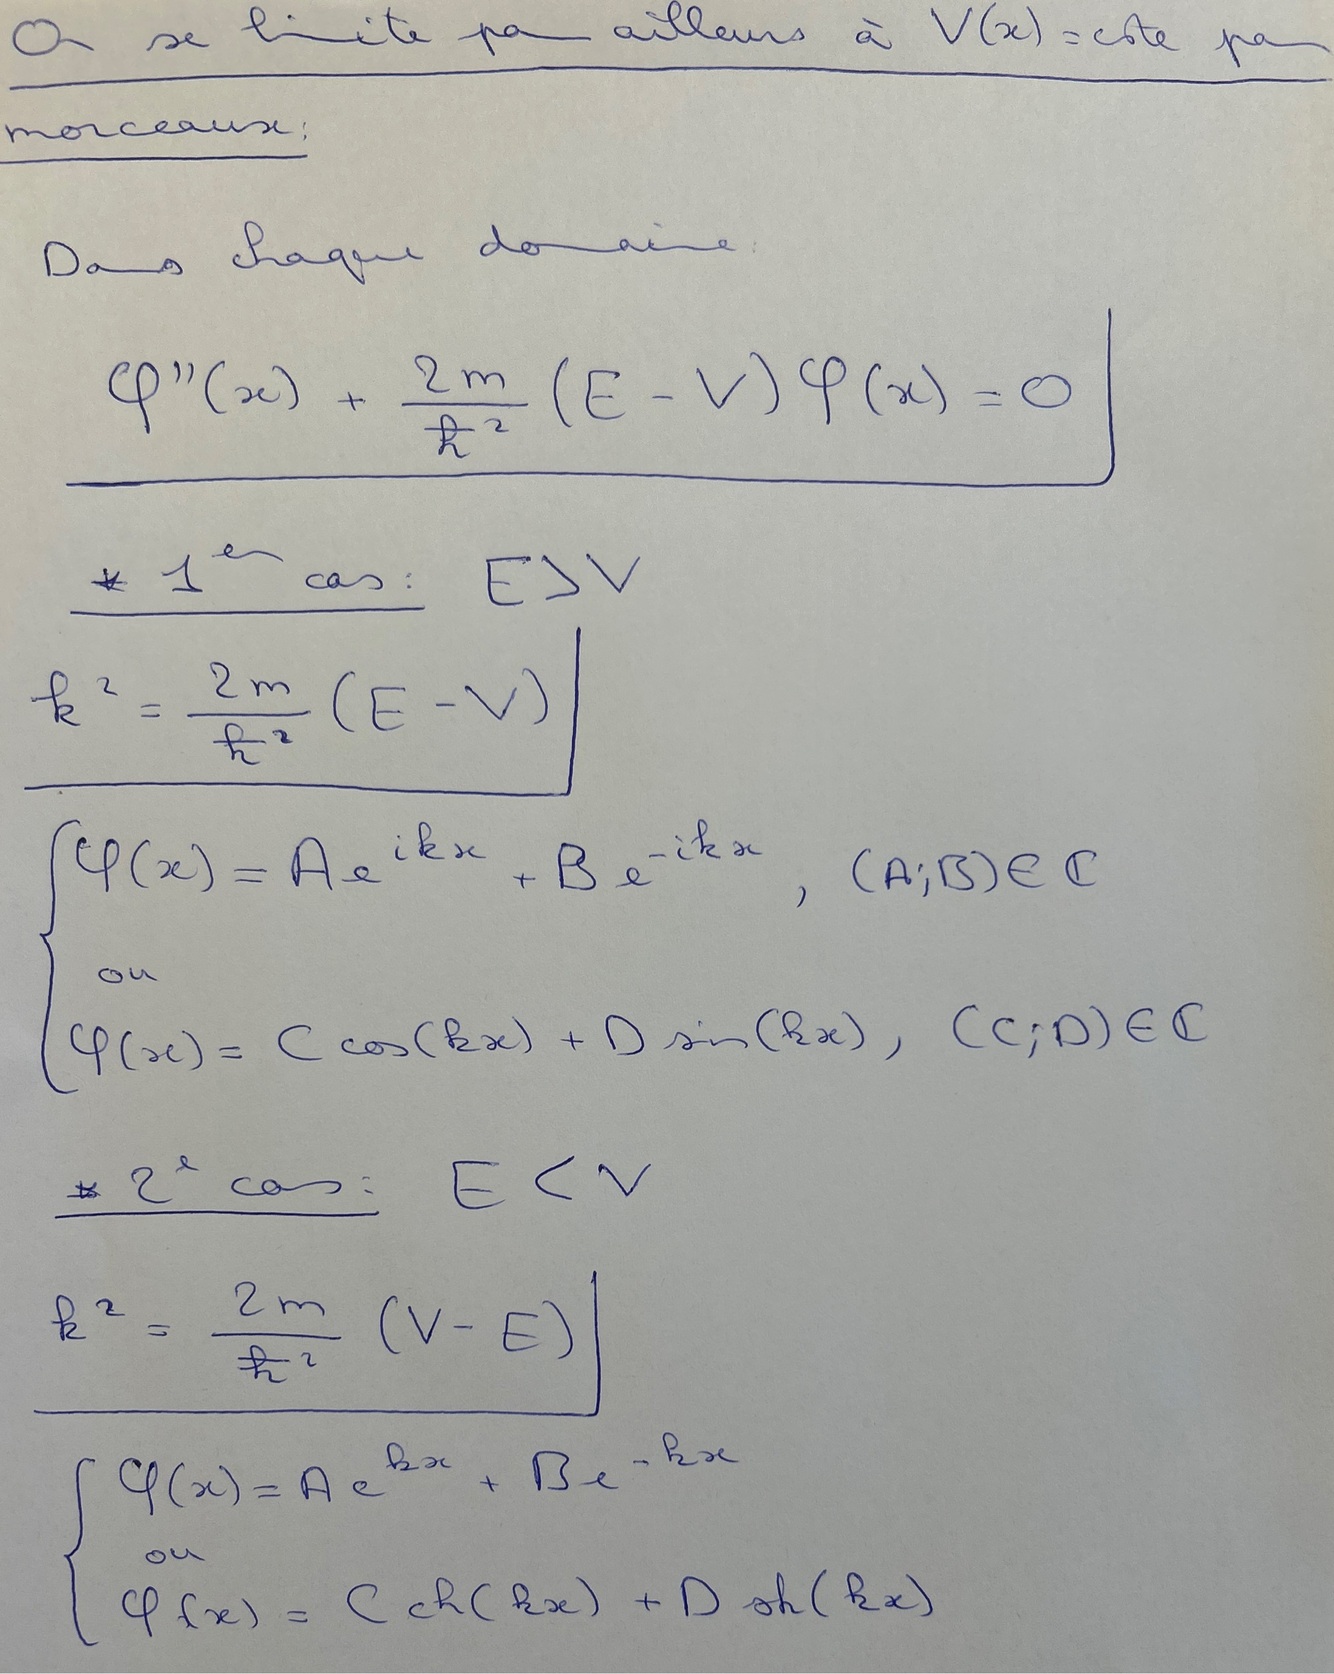 On se limite par ailleurs à V(x) = cste par
morceaux :
Dans chaque domaine :
φ''(x) + 2m/ħ² (E - V) φ(x) = 0
* 1er cas : E > V
k² = 2m/ħ² (E - V)
φ(x) = A e^{ikx} + B e^{-ikx} , (A;B) ∈ ℂ
ou
φ(x) = C cos(kx) + D sin(kx) , (C;D) ∈ ℂ
* 2e cas : E < V
k² = 2m/ħ² (V - E)
φ(x) = A e^{kx} + B e^{-kx}
ou
φ(x) = C ch(kx) + D sh(kx)